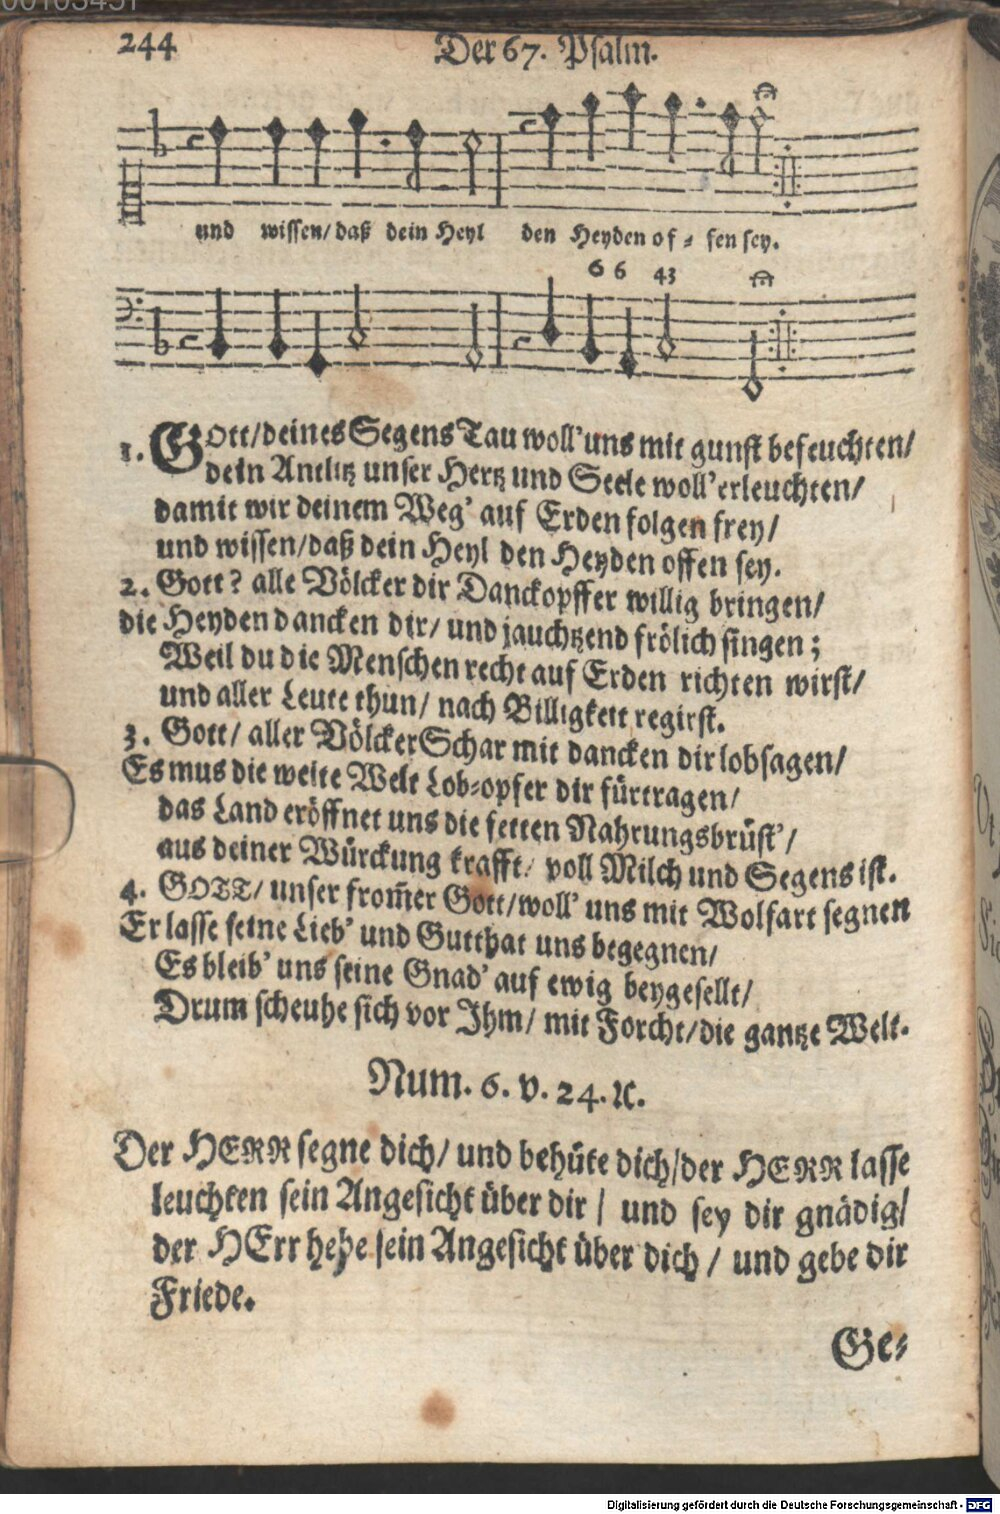 244 Der 67. Psalm.
und wissen/ daß dein Heyl den Heyden of⸗ fen sey.
6 6 43
1. GOtt/ deines Segens Tau woll' uns mit gunst befeuchten/
dein Antlitz unser Hertz und Seele woll' erleuchten/
damit wir deinem Weg' auf Erden folgen frey/
und wissen/ daß dein Heyl den Heyden offen sey.
2. Gott? alle Völcker dir Danckopffer willig bringen/
die Heyden dancken dir/ und jauchtzend frölich singen;
Weil du die Menschen recht auf Erden richten wirst/
und aller Leute thun/ nach Billigkeit regirst.
3. Gott/ aller Völcker Schar mit dancken dir lobsagen/
Es mus die weite Welt Lob⸗opfer dir fürtragen/
das Land eröffnet uns die fetten Nahrungsbrüst'/
aus deiner Würckung krafft/ voll Milch und Segens ist.
4. GOTT/ unser from̃er Gott/ woll' uns mit Wolfart segnen
Er lasse seine Lieb' und Gutthat uns begegnen/
Es bleib' uns seine Gnad' auf ewig beygesellt/
Drum scheuhe sich vor Ihm/ mit Forcht/ die gantze Welt.
Num. 6. v. 24. ꝛc.
Der HERR segne dich/ und behüte dich/ der HERR lasse
leuchten sein Angesicht über dir/ und sey dir gnädig/
der HErr hebe sein Angesicht über dich/ und gebe dir
Friede.
Ge⸗
Digitalisierung gefördert durch die Deutsche Forschungsgemeinschaft - DFG